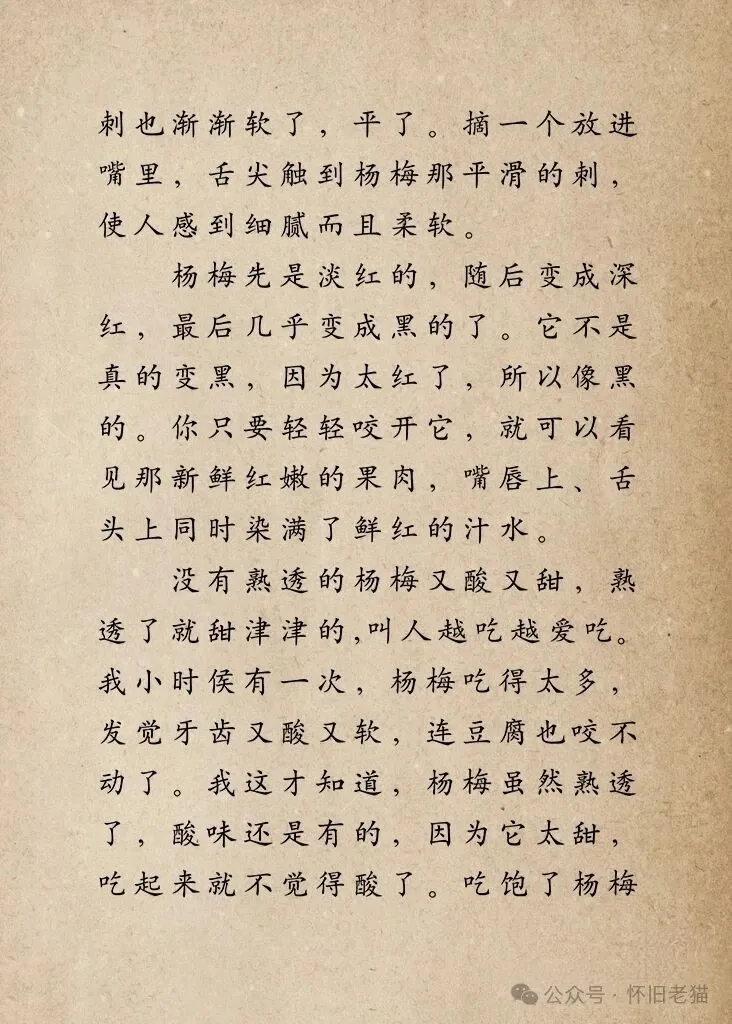 刺也渐渐软了，平了。摘一个放进
嘴里，舌尖触到杨梅那平滑的刺，
使人感到细腻而且柔软。
杨梅先是淡红的，随后变成深
红，最后几乎变成黑的了。它不是
真的变黑，因为太红了，所以像黑
的。你只要轻轻咬开它，就可以看
见那新鲜红嫩的果肉，嘴唇上、舌
头上同时染满了鲜红的汁水。
没有熟透的杨梅又酸又甜，熟
透了就甜津津的,叫人越吃越爱吃。
我小时侯有一次，杨梅吃得太多，
发觉牙齿又酸又软，连豆腐也咬不
动了。我这才知道，杨梅虽然熟透
了，酸味还是有的，因为它太甜，
吃起来就不觉得酸了。吃饱了杨梅
公众号·怀旧老猫